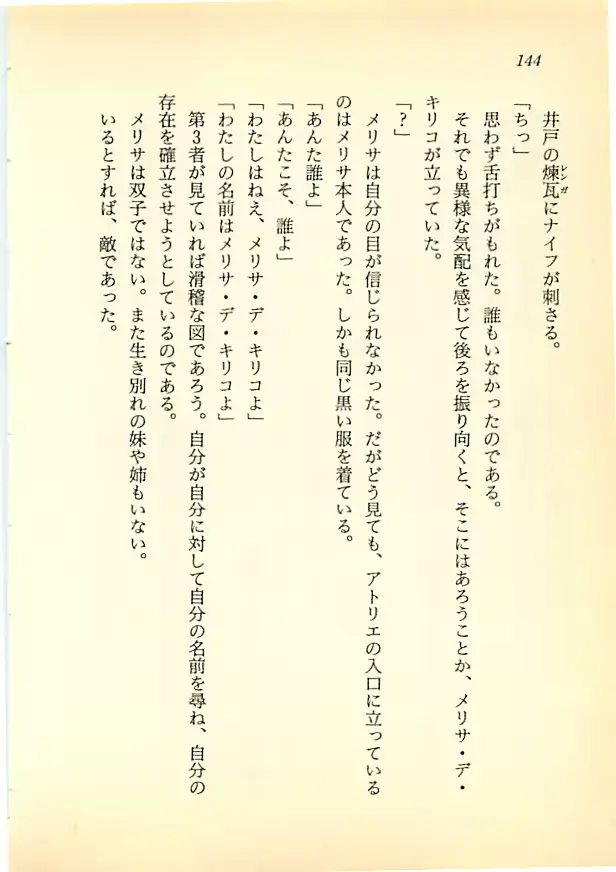 144
井戸の煉瓦にナイフが刺さる。
レンガ
「ちっ」
思わず舌打ちがもれた。誰もいなかったのである。
それでも異様な気配を感じて後ろを振り向くと、そこにはあろうことか、メリサ・デ・
キリコが立っていた。
「?」
メリサは自分の目が信じられなかった。だがどう見ても、アトリエの入口に立っている
のはメリサ本人であった。しかも同じ黒い服を着ている。
「あんた誰よ」
「あんたこそ、誰よ」
「わたしはねえ、メリサ・デ・キリコよ」
「わたしの名前はメリサ・デ・キリコよ」
第3者が見ていれば滑稽な図であろう。自分が自分に対して自分の名前を尋ね、自分の
存在を確立させようとしているのである。
メリサは双子ではない。また生き別れの妹や姉もいない。
いるとすれば、敵であった。